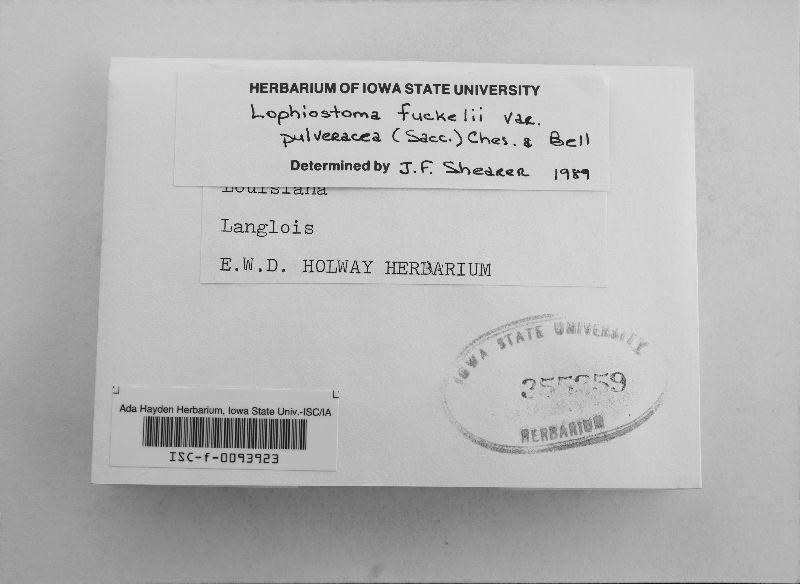 HERBARIUM OF IOWA STATE UNIVERSITY
Lophiostoma fuckelii var.
pulveracea (Sacc.) Ches. & Bell
Determined by J.F. Shearer 1989
Louisiana
Langlois
E.W.D. HOLWAY HERBARIUM
IOWA STATE UNIVERSITY
355359
HERBARIUM
Ada Hayden Herbarium, Iowa State Univ.-ISC/IA
ISC-f-0093923